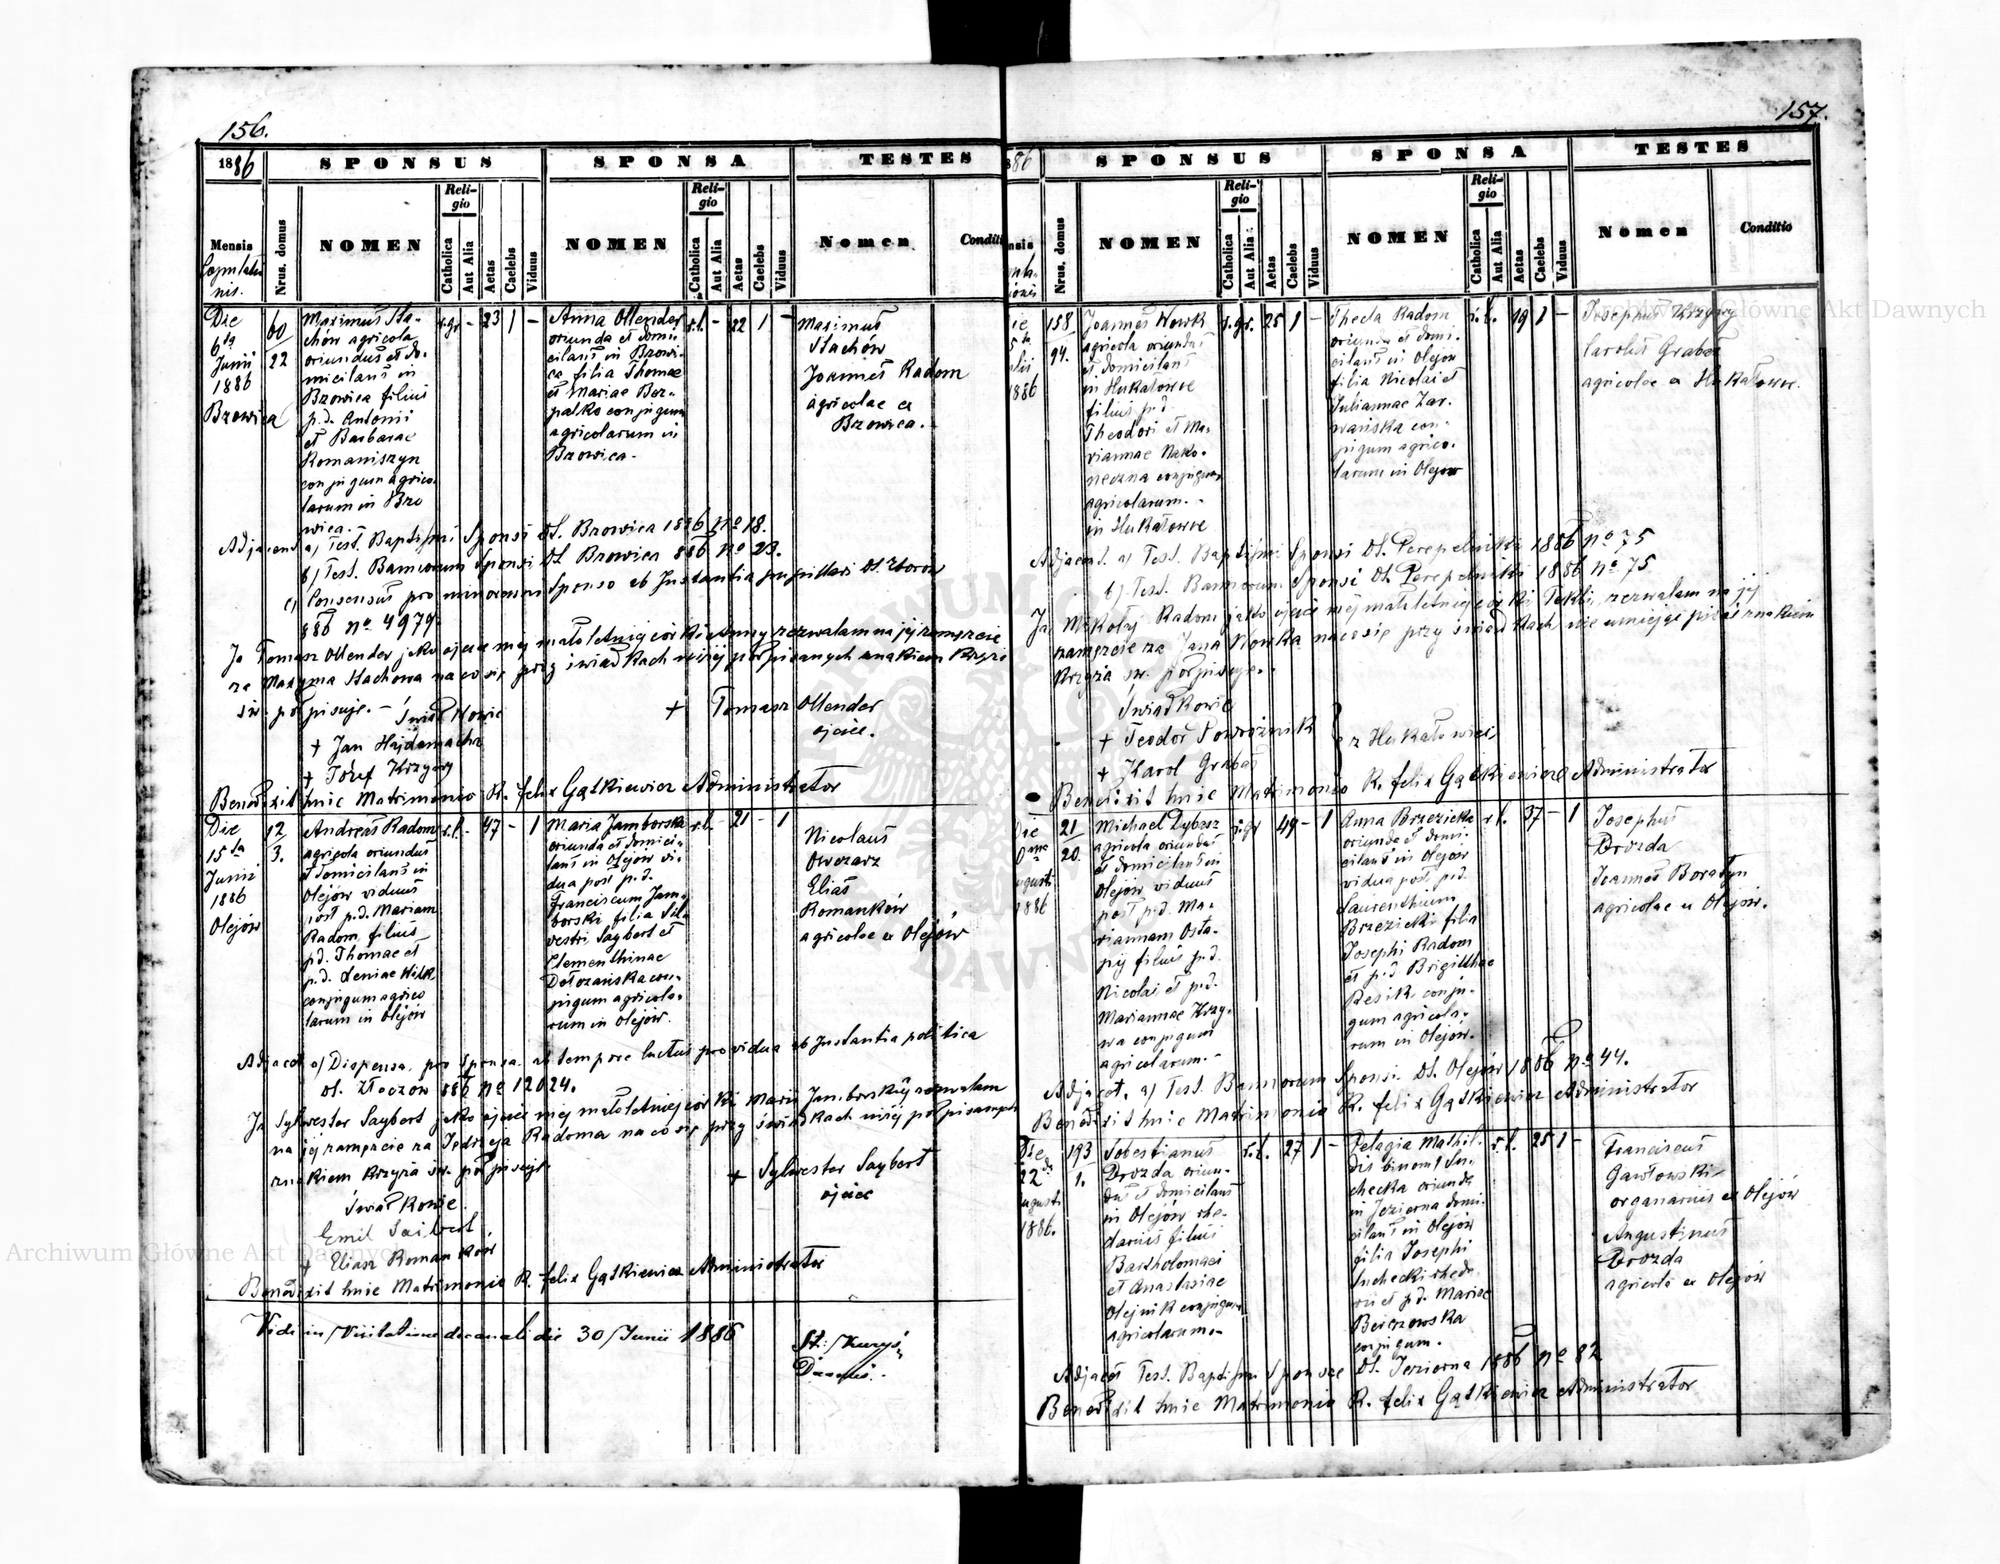 156.
1886
SPONSUS
SPONSA
TESTES
Mensis
Copulatio
nis.
Nrus. domus
NOMEN
Religio
Catholica
Aut Alia
Aetas
Caelebs
Viduus
NOMEN
Religio
Catholica
Aut Alia
Aetas
Caelebs
Viduus
Nomen
Conditi
Die
6ta
Junii
1886
Brzowica
60
22
Maximus Sta-
chów agricola
oriundus et do-
micilans in
Brzowica filius
p.d. Antonii
et Barbarae
Romaniszyn
conjugum agrico-
larum in Brzo
wica.-
r.gr - 23 1 -
Anna Ollender
oriunda et domi-
cilans in Brzowi-
ca filia Thomae
et Mariae
conjugum
agricolarum in
Brzowica.
r.l. - 22 1 -
Maximus
Stachów
Joannes Radom
agricolae ex
Brzowica.
Adjacent a) Test. Baptismi Sponsi dt. Brzowica 1886 No 18.
b) Test. Bannorum Sponsi dt Brzowica 886 No 23.
c) Consensus pro minorenni Sponso ab Instantia pupillari dt. Zborów
886 no 4979
Ja Tomasz Ollender jako ojciec mej małoletniej córki Anny zezwalam na jej zamęzcie
za Maxyma Stachowa na co się przy świadkach niżej podpisanych znakiem Krzyża
św. podpisuje. - Świadkowie
+ Tomasz Ollender
ojciec.
+ Jan Hajdamacha
+ Józef Krzywy
Benedixit huic Matrimonio R. Felix Gątkiewicz Administrator
Die
15ta
Junii
1886
Olejów
12
3.
Andreas Radom
agricola oriundus
et domicilans in
Olejów viduus
post p.d. Mariam
Radom, filius
p.d. Thomae et
p.d. Xeniae Wilk
conjugum agrico
larum in Olejów
r.l. - 47 - 1
Maria Jamborska
oriunda et domici-
lans in Olejów vi-
dua post p.d.
Franciscum Jam-
borski filia Sil-
vestri Saybert et
Clementhinae
con-
jugum agricola-
rum in Olejów.
r.l. - 21 - 1
Nicolaus
Owczarz
Elias
Romanków
agricolae ex Olejów
Adjacet a) Dispensa, pro Sponsa, ab tempore luctus pro vidua ab Instantia politica
dt. Złoczów 886 No 12024.
Ja Sylwester Saybert jako ojciec mej małoletniej córki Marii Jamborskiej zezwalam
na jej zamęzcie za Jędrzeja Radoma na co się przy świadkach niżej podpisanych
znakiem Krzyża św. podpisuje
+ Sylwester Saybert
ojciec
Świadkowie
Emil Saibert
+ Eliasz Romanków
Benedixit huic Matrimonio R. Felix Gątkiewicz Administrator
Vidi in Visitatione decanali die 30 Junii 1886
157.
886
SPONSUS
SPONSA
TESTES
Nrus. domus
NOMEN
Religio
Catholica
Aut Alia
Aetas
Caelebs
Viduus
NOMEN
Religio
Catholica
Aut Alia
Aetas
Caelebs
Viduus
Nomen
Conditio
1886
158
94.
Joannes Nowk
agricola oriundus
et domicilans
in Hukałowce
filius p.d.
Theodori et Ma-
riannae Nako-
neczna conjugum
agricolarum.-
in Hukałowce
r.gr. 25 1 -
Thecla Radom
oriunda et domi-
cilans in Olejów
filia Nicolai et
Juliannae Zar-
wańska con-
jugum agrico-
larum in Olejów
r.l. 19 1 -
Josephus Krzywy
Carolus Grabas
agricolae ex Hukałowce.
Adjacent. a) Test. Baptismi Sponsi dt. Perepelniki 1886 No 75
b) Test. Bannorum Sponsi dt Perepelniki 1886 No 75
Ja Mikołaj Radom jako ojciec mej małoletniej córki Tekli, zezwalam na jej
zamęzcie za Jana Nowka na co się przy świadkach nie umiejąc pisać znakiem
Krzyża św. podpisuje.-
Świadkowie
+ Teodor Poworoźnik
+ Karol Grabas
z Hukałowiec
Benedixit huic Matrimonio R. Felix Gątkiewicz Administrator
1886
21
20.
Michael Dybasz
agricola oriundus
et domicilans in
Olejów, viduus
post p.d. Ma-
riannam Osta-
pij filius p.d.
Nicolai et p.d.
Mariannae Krzy-
wa conjugum
agricolarum.-
r.gr 49 - 1
Anna Brzezicka
oriunda et domi-
cilans in Olejów
vidua post p.d.
Laurenthium
Brzezicki filia
Josephi Radom
et p.d. Brigitthae
Resik conju-
gum agricola-
rum in Olejów.
r.l. 37 - 1
Josephus
Drozda
Joannes Boratyn
agricolae ex Olejów.
Adjacet. a) Test. Bannorum Sponsi dt. Olejów 1886 No 44.
Benedixit huic Matrimonio R. Felix Gątkiewicz Administrator
Die
22da
Augusti
1886.
193
1.
Sobestianus
Drozda oriun-
dus et domicilans
in Olejów rhe-
darius filius
Bartholomaei
et Anastasiae
Olejnik conjugum
agricolarum-
r.l. 27 1 -
Pelagia Mathil-
dis binom. Su-
checka oriunda
in Jezierna domi-
cilans in Olejów
filia Josephi
Suchecki rheda-
rii et p.d. Mariae
Berezowska
conjugum.
r.l. 25 1 -
Franciscus
Gawłowski
organarius ex Olejów
Augustinus
Drozda
agricola ex Olejów
Adjacet Test. Baptismi Sponsae dt. Jezierna 1886 No 82
Benedixit huic Matrimonio R. Felix Gątkiewicz Administrator
Archiwum Główne Akt Dawnych
Archiwum Główne Akt Dawnych